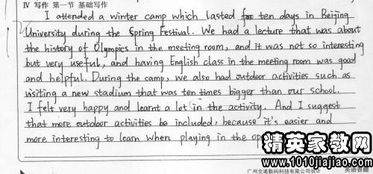 IV 写作 第一节 基础写作
I attended a winter camp which lasted for ten days in Beijing
University during the Spring Festival. We had a lecture that was about
the history of Olympics in the meeting room, and it was not so interesting
but very useful, and having English class in the meeting room was good
and helpful. During the camp, we also had outdoor activities such as
visiting a new stadium that was ten times bigger than our school.
I felt very happy and learnt a lot in the activity. And I suggest
that more outdoor activities be included, because it's easier and
more interesting to learn when playing in the op
精英家教网
www.1010jiajiao.com